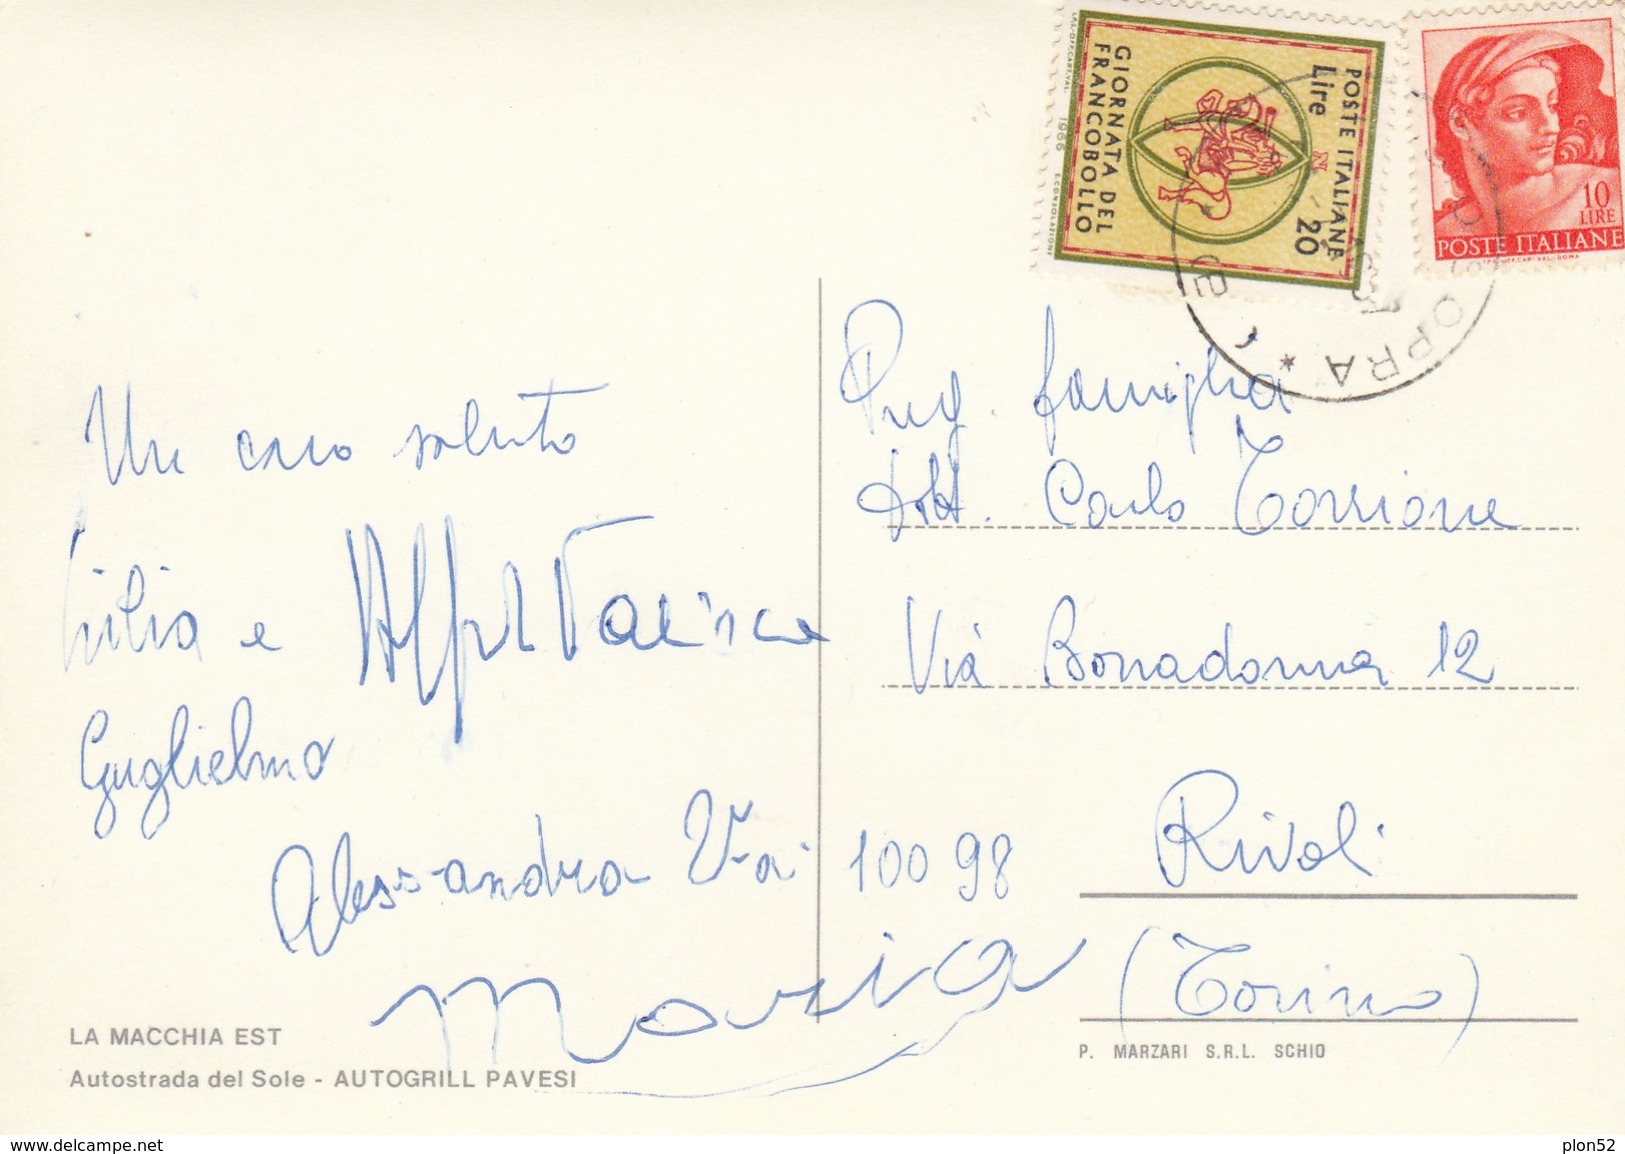 POSTE ITALIANE
Lire 20
GIORNATA DEL
FRANCOBOLLO
I.P.S.-OFF.CART.VAL. 1966 E.CONSOLAZIONE
10
LIRE
POSTE ITALIANE
OPRA * (
Un caro saluto
Giulia e
Guglielmo
Alessandra
Maria
Preg. famiglia
Dott. Carlo Torrione
Via Bonadonna 12
10098 Rivoli
(Torino)
LA MACCHIA EST
Autostrada del Sole - AUTOGRILL PAVESI
P. MARZARI S.R.L. SCHIO
www.delcampe.net
plon52